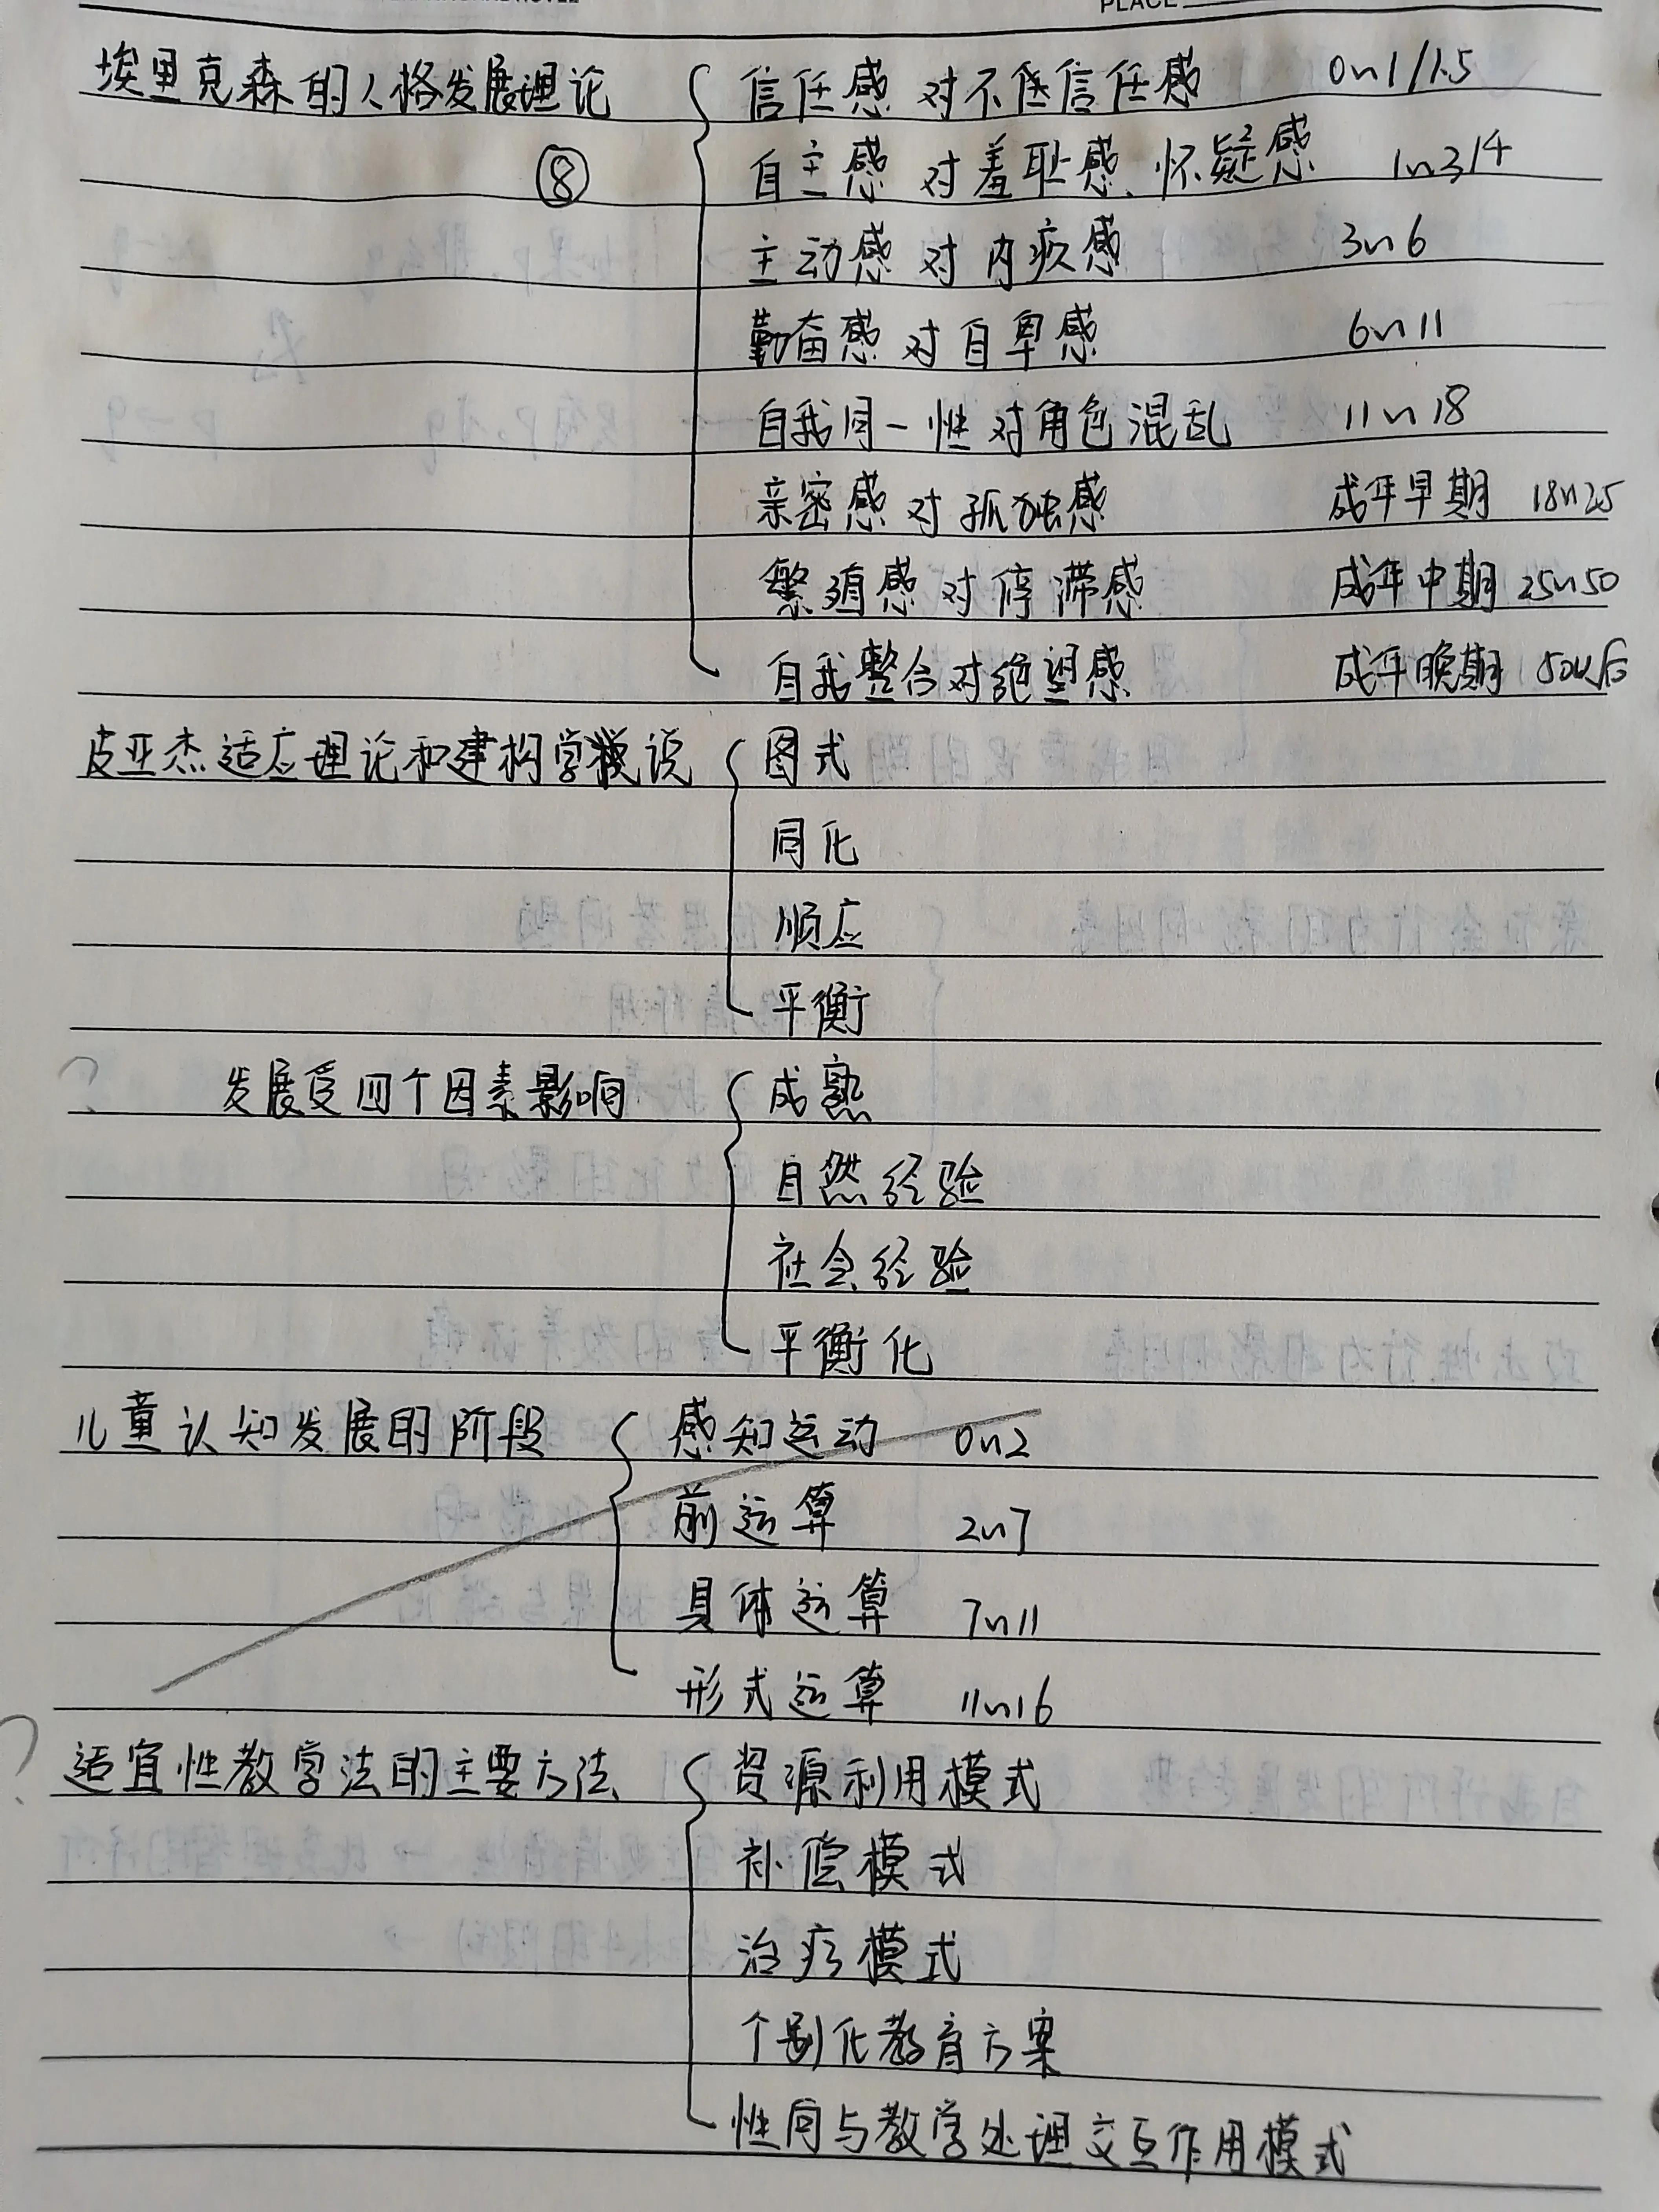 PLACE
埃里克森的人格发展理论 信任感 对不信任感 0~1/1.5
⑧ 自主感 对羞耻感、怀疑感 1~3/4
主动感 对 内疚感 3~6
勤奋感 对自卑感 6~11
自我同一性对角色混乱 11~18
亲密感对孤独感 成年早期 18~25
繁殖感对停滞感 成年中期 25~50
自我整合对绝望感 成年晚期 50以后
皮亚杰适应理论和建构学说 图式
同化
顺应
平衡
? 发展受四个因素影响 成熟
自然经验
社会经验
平衡化
儿童认知发展的阶段 感知运动 0~2
前运算 2~7
具体运算 7~11
形式运算 11~16
? 适宜性教学法的主要方法 资源利用模式
补偿模式
治疗模式
个别化教育方案
性向与教学处理交互作用模式